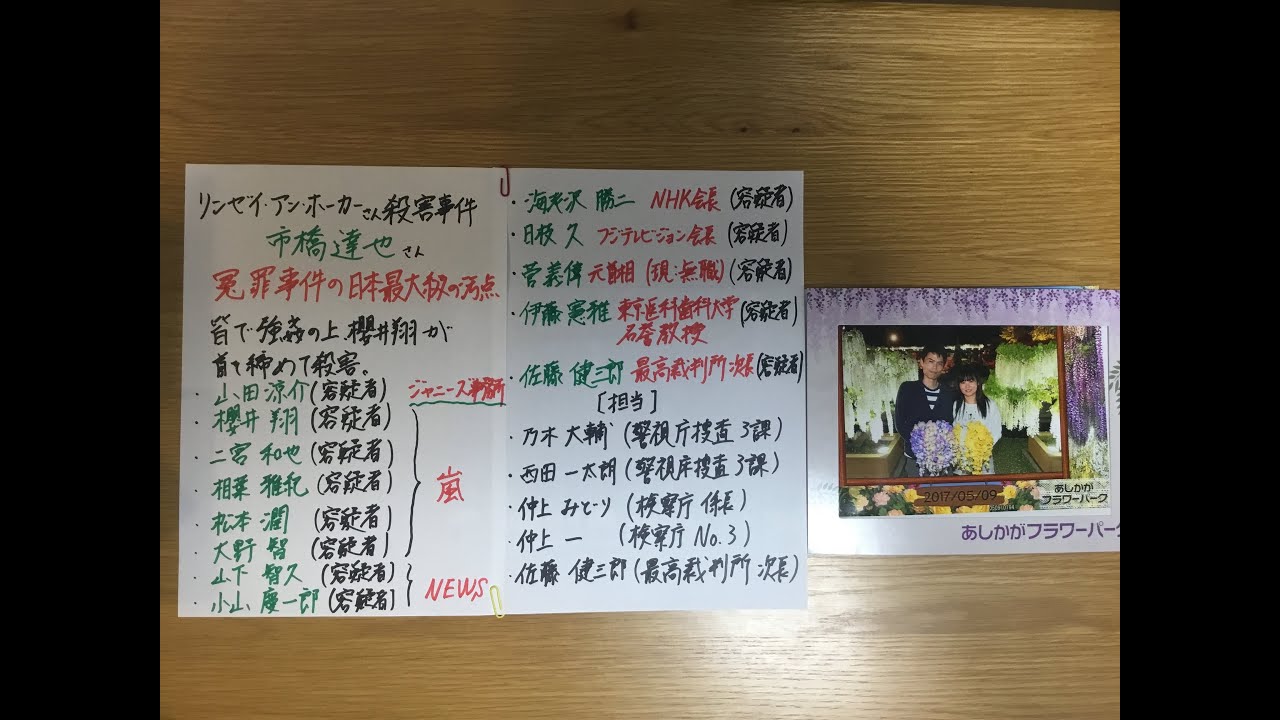 リンゼイ・アン・ホーカーさん殺害事件
市橋達也さん
冤罪事件の日本最大級の汚点
皆で強姦の上、櫻井翔が
首を締めて殺害。
・山田涼介(容疑者)
ジャニーズ事務所
・櫻井 翔(容疑者)
・二宮 和也(容疑者)
・相葉 雅紀(容疑者)
嵐
・松本 潤 (容疑者)
・大野 智 (容疑者)
・山下 智久 (容疑者)
・小山 慶一郎(容疑者)
NEWS
・海老沢 勝二 NHK会長(容疑者)
・日枝 久 フジテレビジョン会長(容疑者)
・菅義偉 元首相(現:無職)(容疑者)
・伊藤 憲雅 東京医科歯科大学(容疑者)
名誉教授
・佐藤 健三郎 最高裁判所次長(容疑者)
[担当]
・乃木 大輔(警視庁捜査3課)
・西田 一太朗(警視庁捜査3課)
・仲上 みどり(検察庁 係長)
・仲上 一 (検察庁 No.3)
・佐藤 健三郎(最高裁判所 次長)
2017/05/09
あしかが
フラワーパーク
あしかがフラワーパーク